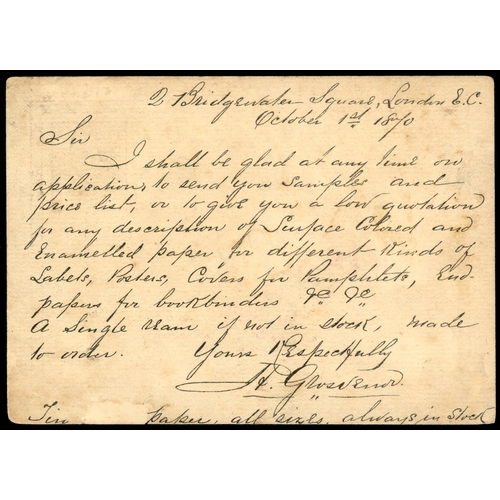 2 Bridgewater Square, London E.C.
October 1st 1870
Sir
I shall be glad at any time on
application, to send you samples and
price list, or to give you a low quotation
for any description of Surface Colored and
Enamelled paper, for different kinds of
Labels, Posters, Covers for Pamphlets, End-
papers for bookbinders &c &c
A Single ream if not in stock, made
to order. Yours Respectfully
A. Grosvenor
paper, all sizes, always in stock